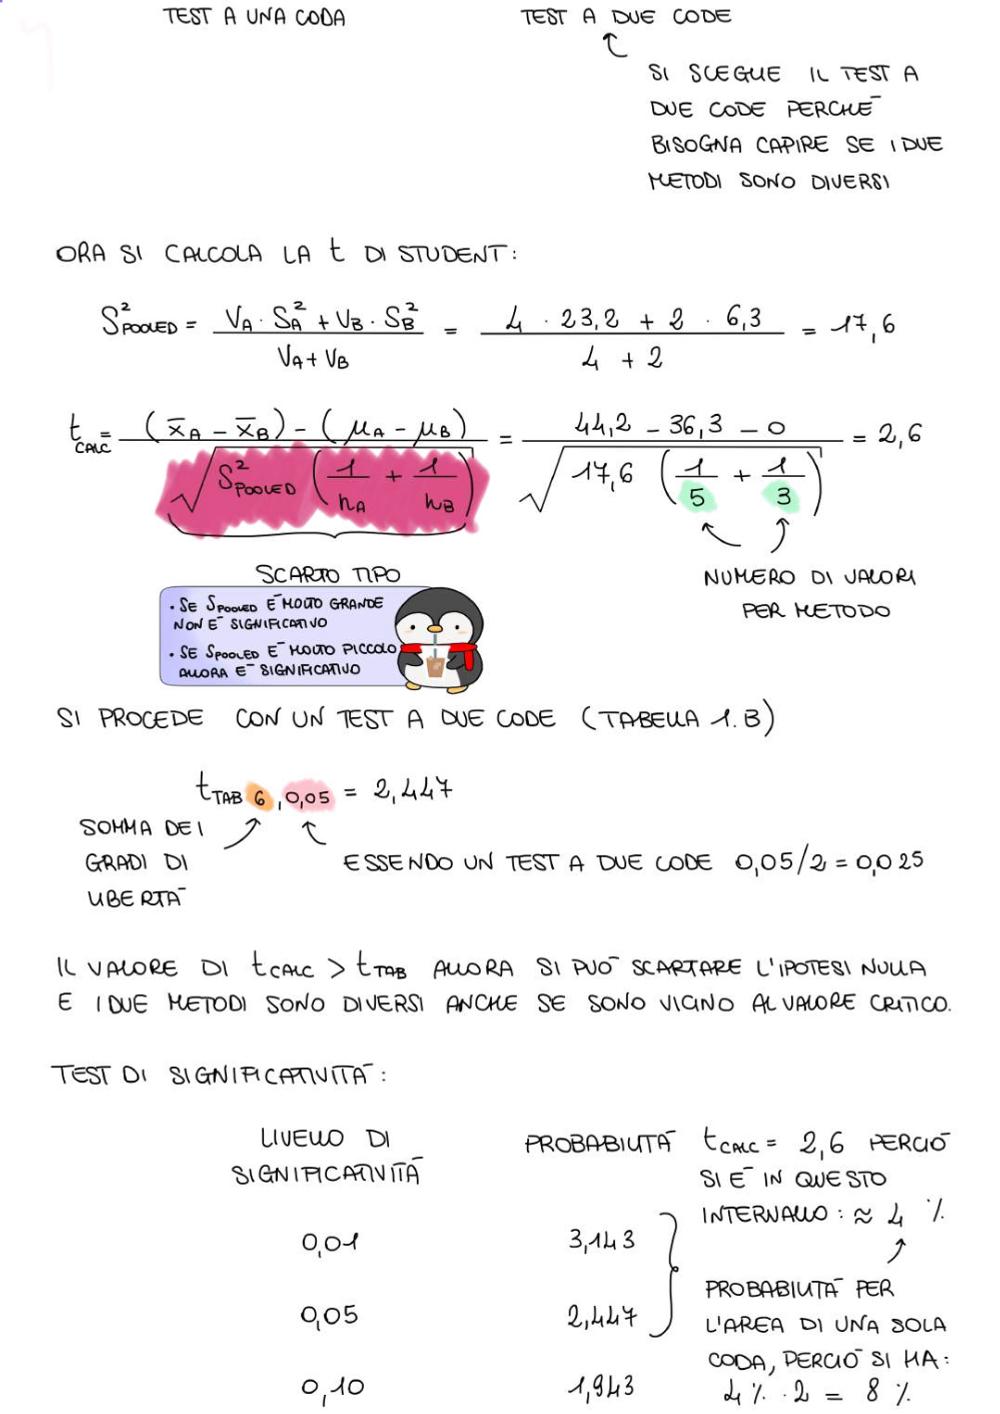 TEST A UNA CODA
TEST A DUE CODE
SI SCEGLIE IL TEST A
DUE CODE PERCHÉ
BISOGNA CAPIRE SE I DUE
METODI SONO DIVERSI
ORA SI CALCOLA LA t DI STUDENT:
S²POOLED = (VA · SA² + VB · SB²) / (VA + VB) = (4 · 23,2 + 2 · 6,3) / (4 + 2) = 17,6
tCALC = ((x̄A − x̄B) − (μA − μB)) / √(S²POOLED (1/nA + 1/nB)) = (44,2 − 36,3 − 0) / √(17,6 (1/5 + 1/3)) = 2,6
SCARTO TIPO
NUMERO DI VALORI
PER METODO
• SE SPOOLED È MOLTO GRANDE
NON È SIGNIFICATIVO
• SE SPOOLED È MOLTO PICCOLO
ALLORA È SIGNIFICATIVO
SI PROCEDE CON UN TEST A DUE CODE (TABELLA 1.B)
tTAB 6, 0,05 = 2,447
SOMMA DEI
GRADI DI
LIBERTÀ
ESSENDO UN TEST A DUE CODE 0,05/2 = 0,025
IL VALORE DI tCALC > tTAB ALLORA SI PUÒ SCARTARE L'IPOTESI NULLA
E I DUE METODI SONO DIVERSI ANCHE SE SONO VICINO AL VALORE CRITICO.
TEST DI SIGNIFICATIVITÀ:
LIVELLO DI
SIGNIFICATIVITÀ
PROBABILITÀ
0,01 3,143
0,05 2,447
0,10 1,943
tCALC = 2,6 PERCIÒ
SI È IN QUESTO
INTERVALLO: ≈ 4 %
PROBABILITÀ PER
L'AREA DI UNA SOLA
CODA, PERCIÒ SI HA:
4 % · 2 = 8 %